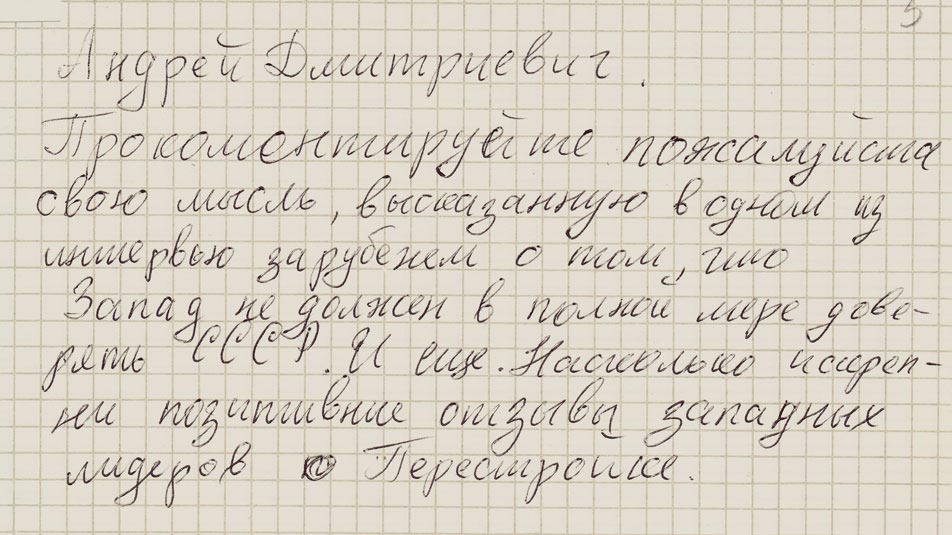 5
Андрей Дмитриевич.
Прокоментируйте пожалуйста
свою мысль, высказанную в одном из
интервью зарубежем о том, что
Запад не должен в полной мере дове-
рять СССР. И еще. Насколько искрен-
ни позитивные отзывы западных
лидеров о Перестройке.